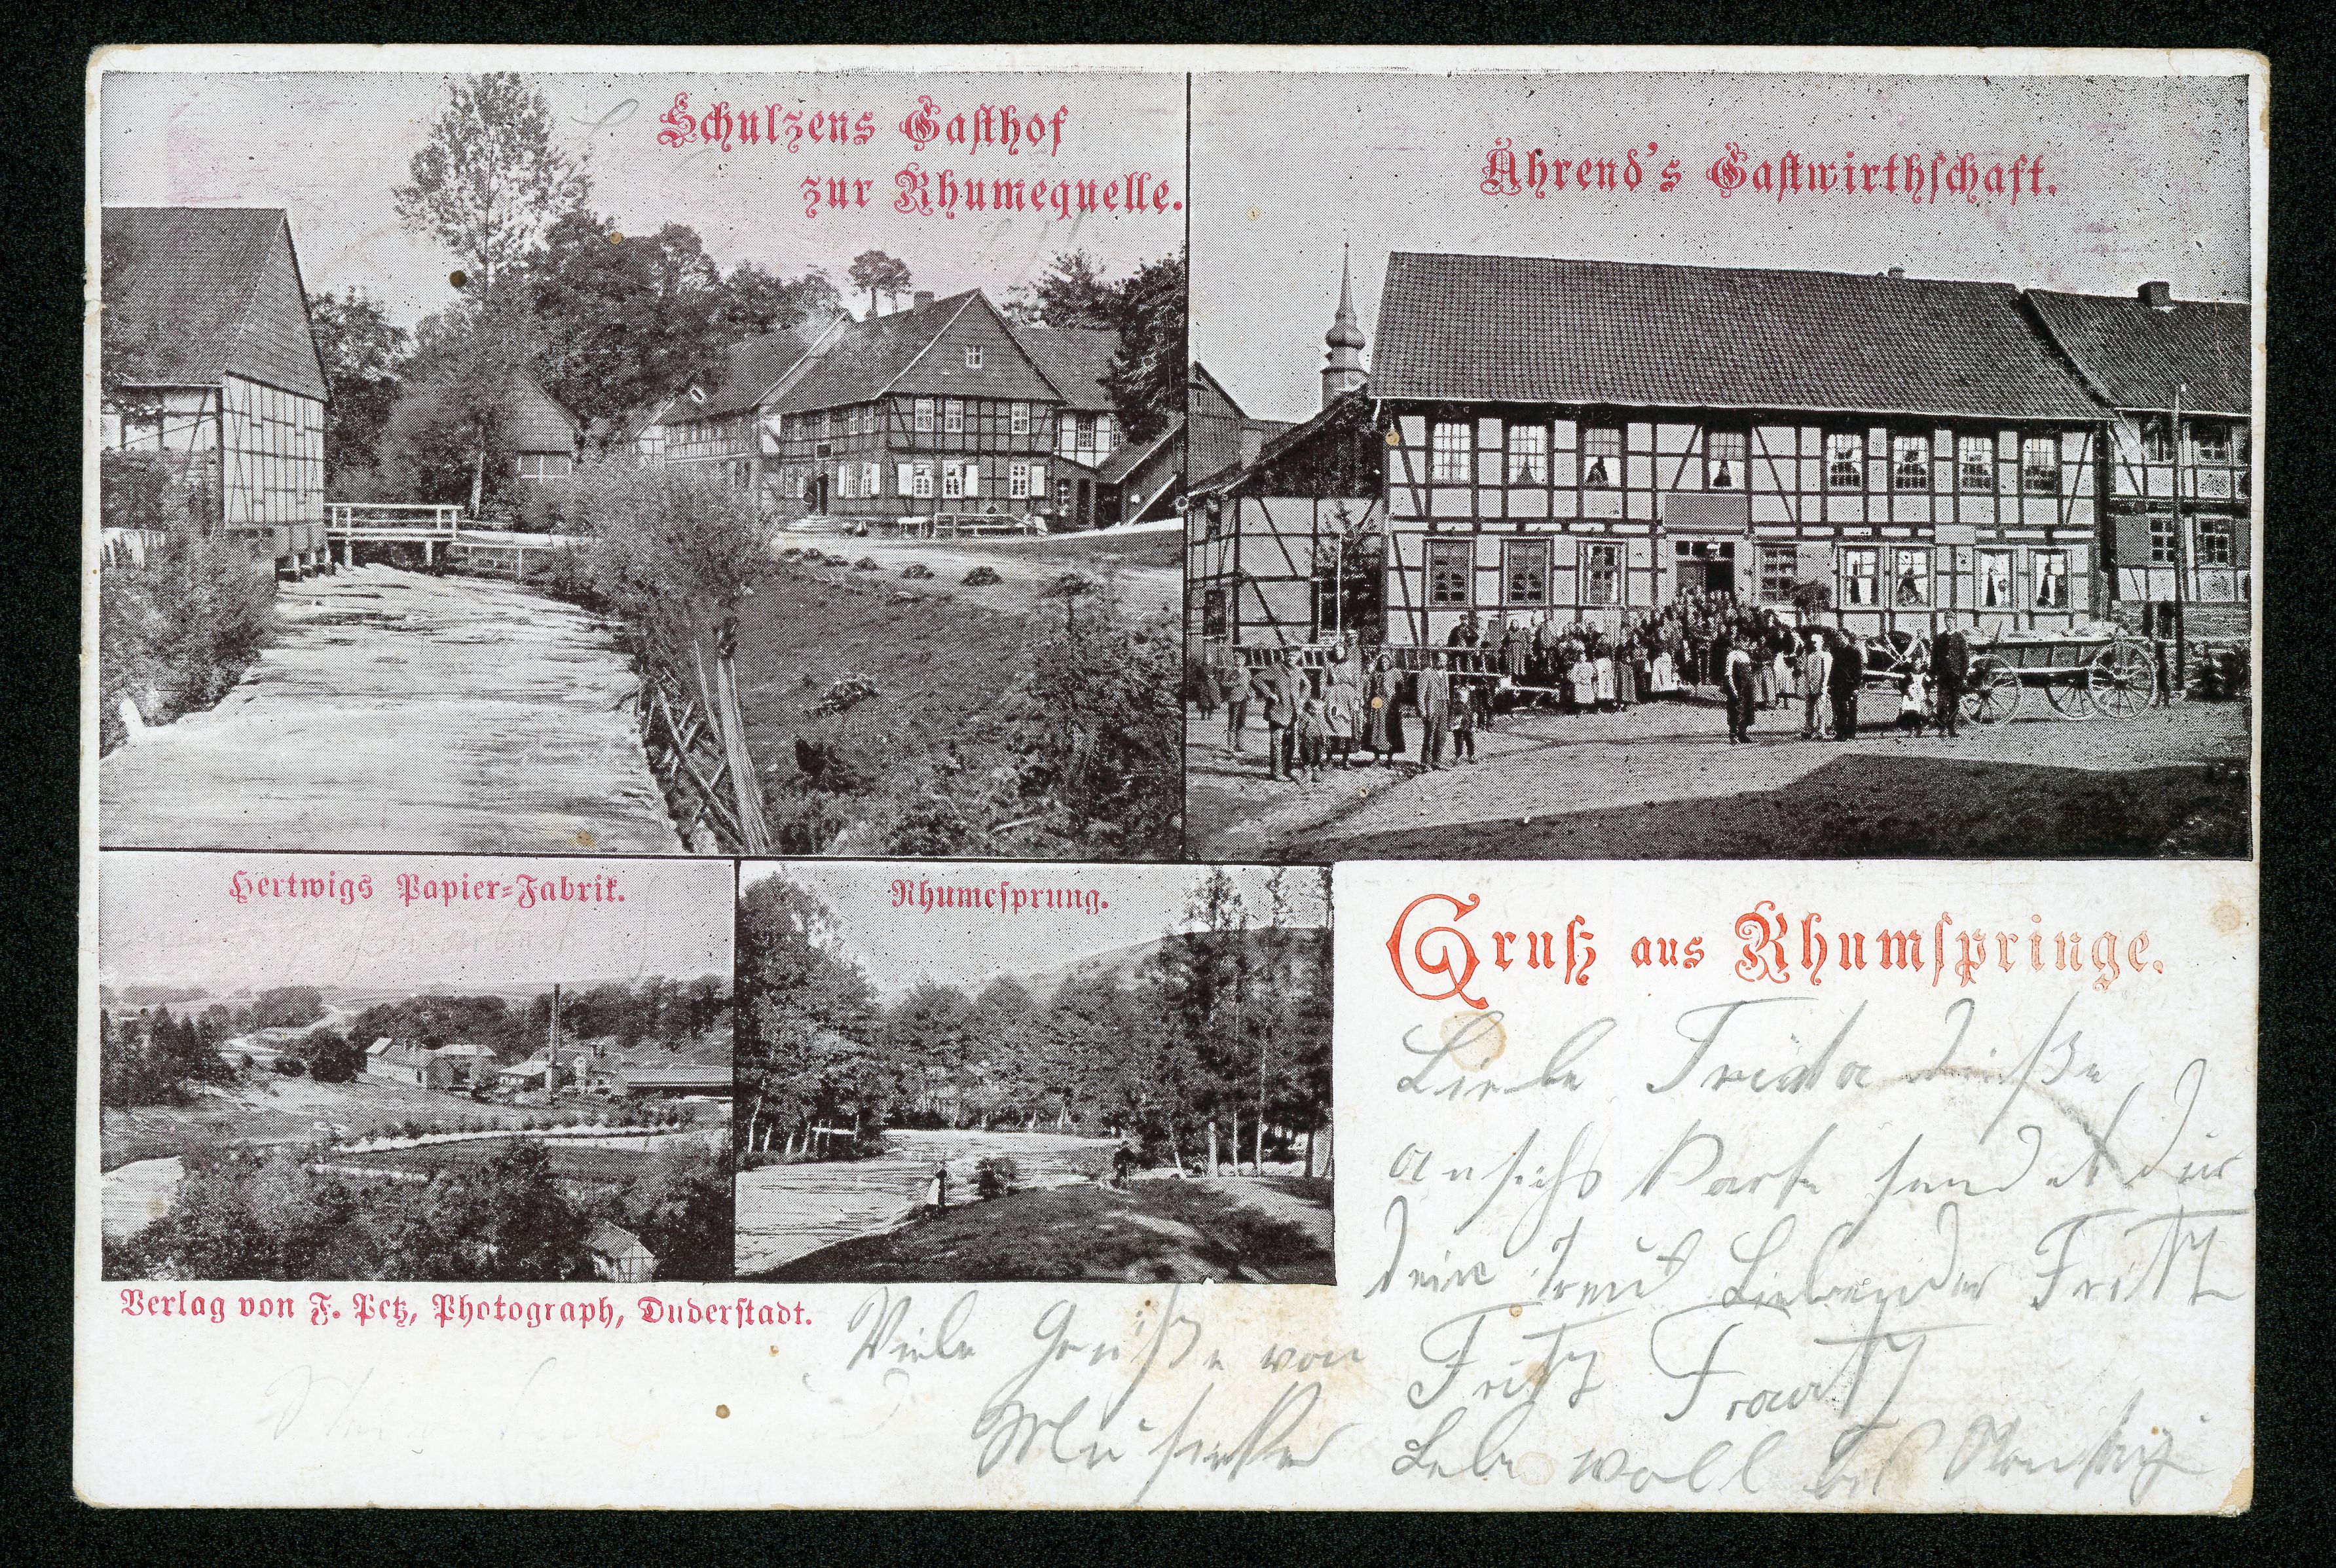 Schulzens Gasthof
zur Rhumequelle.
Ährend's Gastwirthschaft.
Hertwigs Papier-Fabrik.
Rhumesprung.
Gruß aus Rhumspringe.
Liebe Frida dieße
ansichs Karte sendet dir
dein treu Liebender Fritz
Fritz
Verlag von F. Petz, Photograph, Duderstadt.
Viele Grüße von
Lebe woll bis